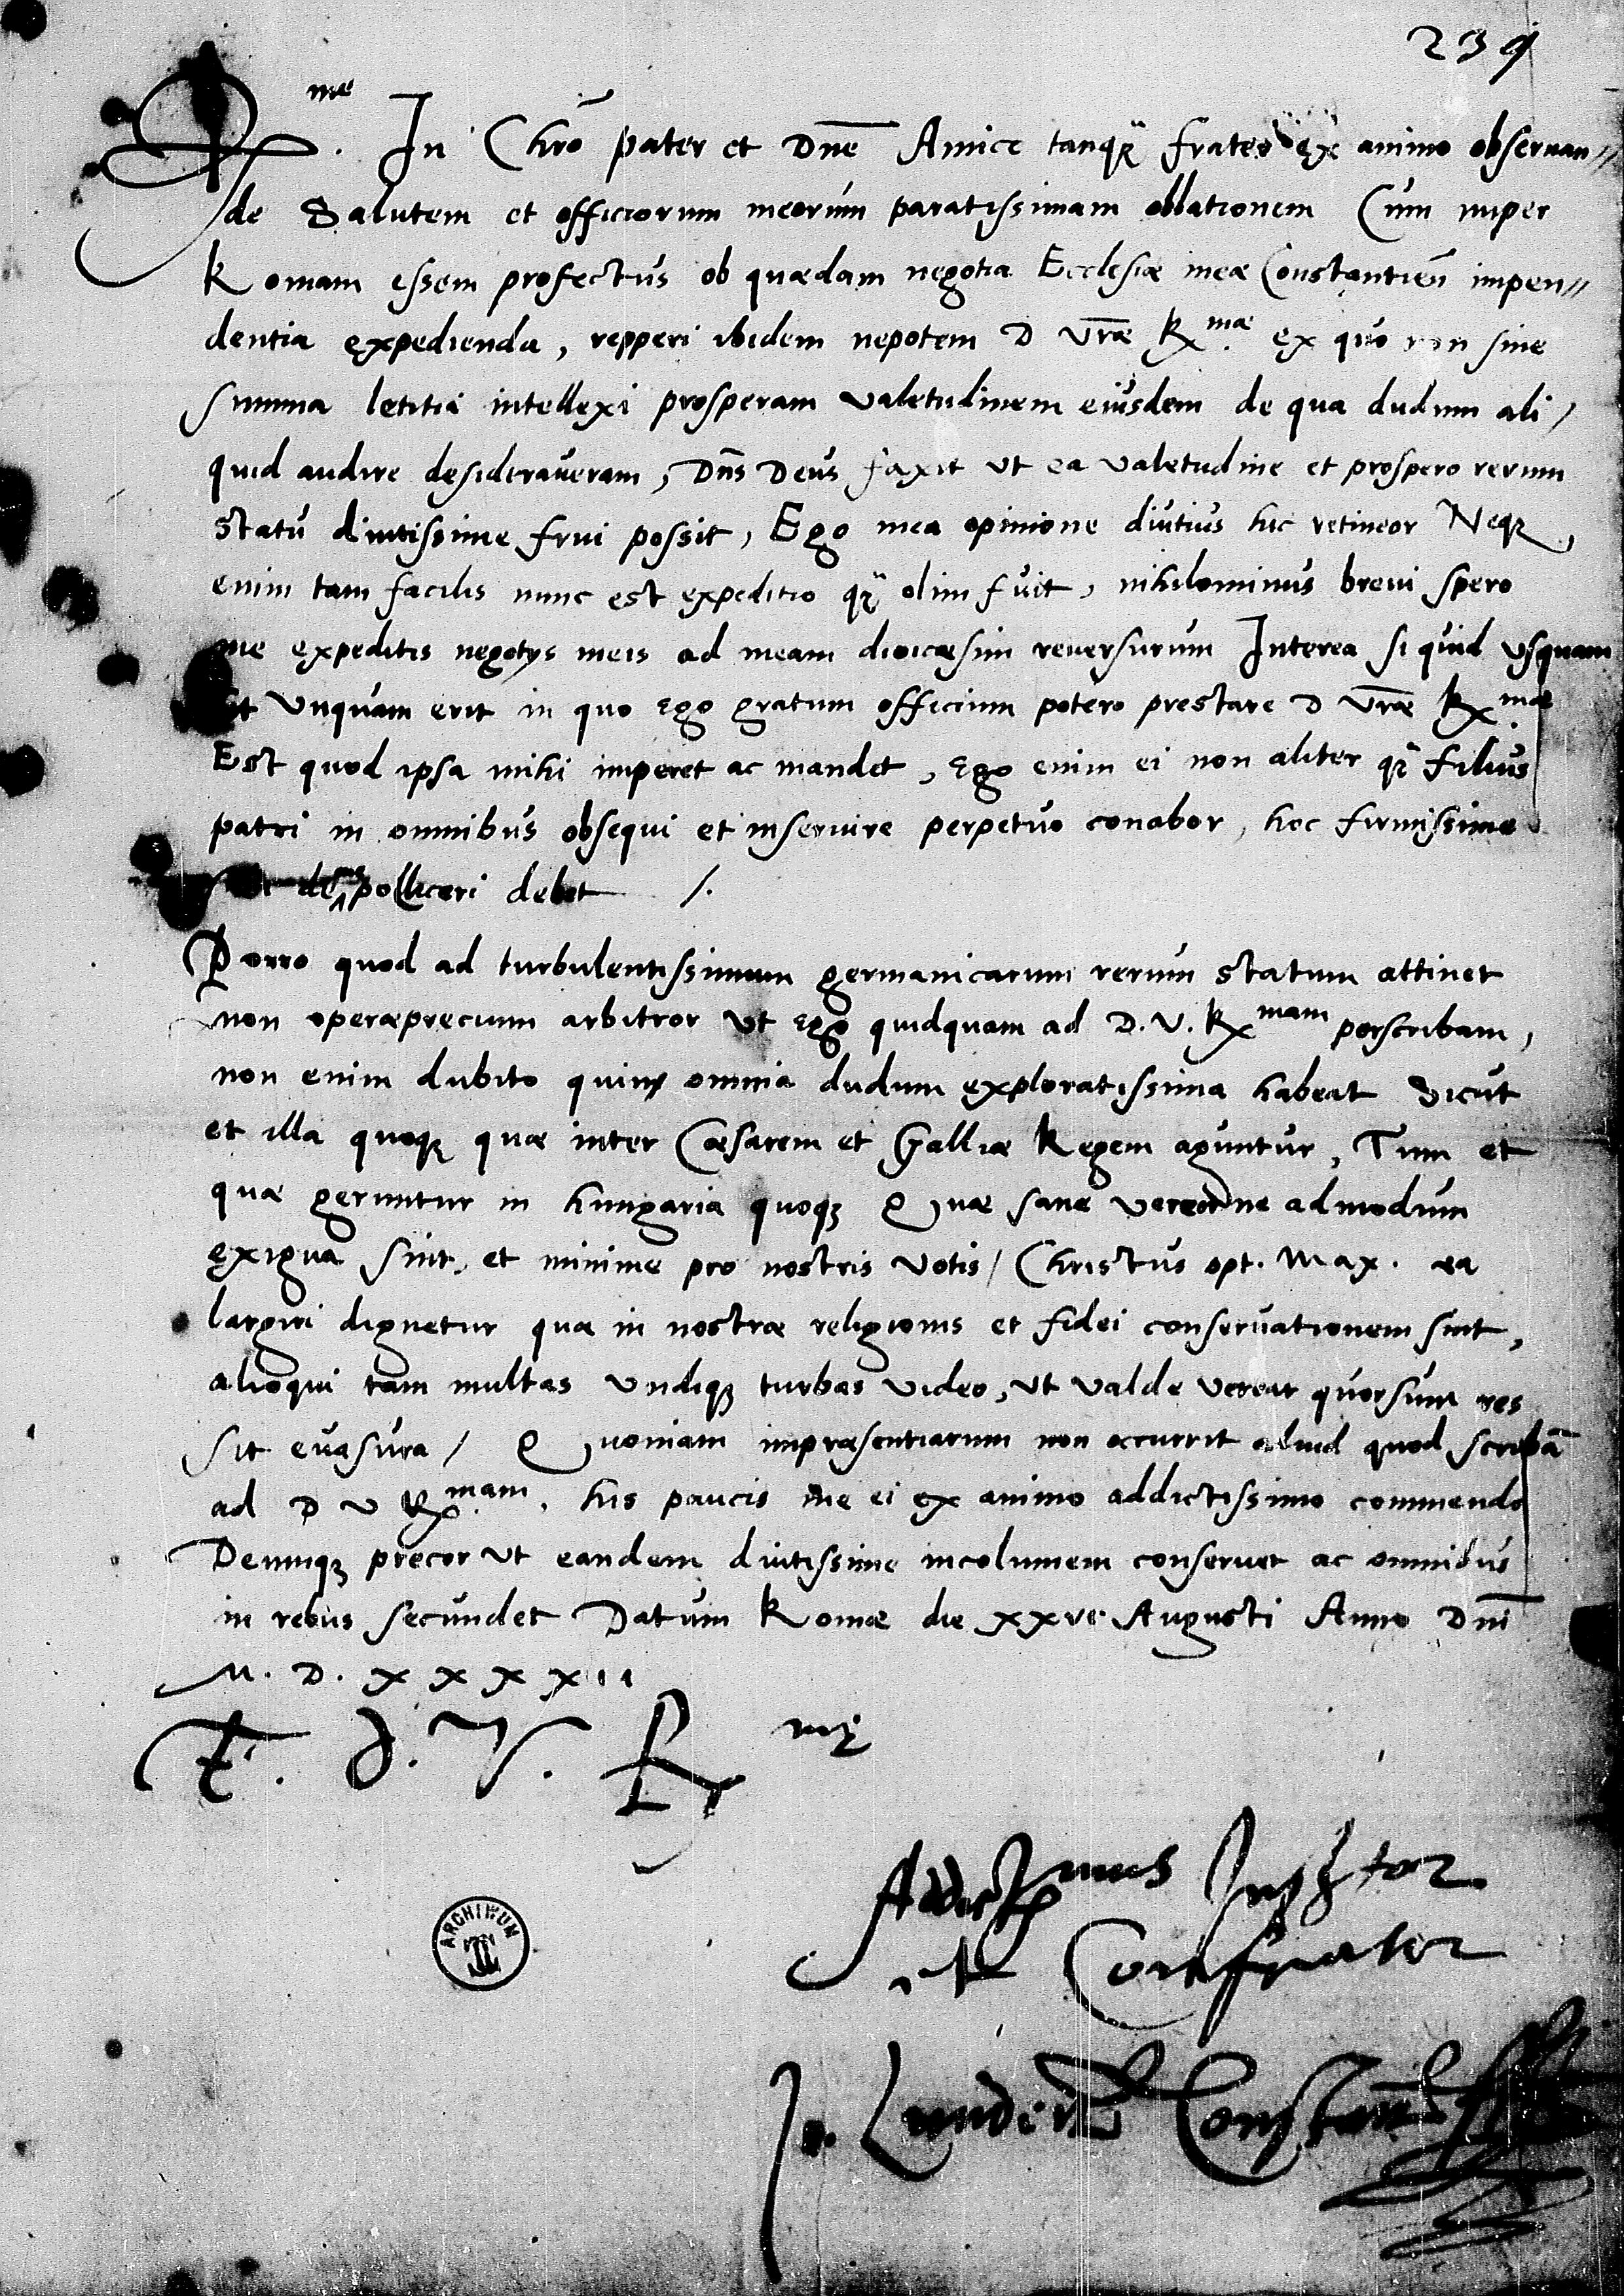 239
R.me In Chr̄o pater et Dn̄e Amice tanqȝ frater ex animo obseruan//
de Salutem et officiorum meorum paratissimam oblationem Cum nuper
Romam essem profectus ob quædam negotia Ecclesiæ meæ Constantien̄ impen//
dentia expedienda, repperi ibidem nepotem D Vrǣ R.mæ ex quo non sine
summa lętitia intellexi prosperam valetudinem eiusdem de qua dudum ali/
quid audire desideraueram, Dn̄s Deus faxit ut ea valetudine et prospero rerum
statu diutissime frui possit, Ego mea opinione diutius hic retineor Neqȝ
enim tam facilis nunc est expeditio qȝ olim fuit, nihilominus breui spero
me expeditis negotys meis ad meam diœcæsim reuersurum Interea si quid usquam
et Unquam erit in quo Ego gratum officium potero prestare D Vrǣ R.mæ
Est quod ipsa mihi imperet ac mandet, Ego enim ei non aliter qȝ filius
patri in omnibus obsequi et inseruire perpetuo conabor, hoc firmissime
de me polliceri debet /.
Porro quod ad turbulentissimum germanicarum rerum statum attinet
non operæprecium arbitror Ut Ego quidquam ad D. V. R.mam perscribam,
non enim dubito quin omnia dudum exploratissima habeat Sicut
et illa quoqȝ quæ inter Cæsarem et Galliæ Regem aguntur, Tum et
quæ geruntur in hungaria quoqȝ Quæ sane vereor ne admodum
exigua sint, et minime pro nostris Votis / Christus opt. Max. ea
largiri dignetur quæ in nostræ religionis et fidei conseruationem sint,
alioqui tam multas Undiqȝ turbas video, Ut valde verear quorsum res
sit euasura / Quoniam impræsentiarum non occurrit aliud quod scribā
ad D V R.mam, his paucis me ei ex animo addictissimo commendo
Deniqȝ precor ut eandem diutissime incolumem conseruet ac omnibus
in rebus secundet Datum Romæ die xxvi Augusti Anno Dn̄i
M. D. x x x x i i
E. d. V. R mę
Addictissimus Inseruitor
et Confrater
Jo. Lunden̄ Constan̄
ARCHIVUM